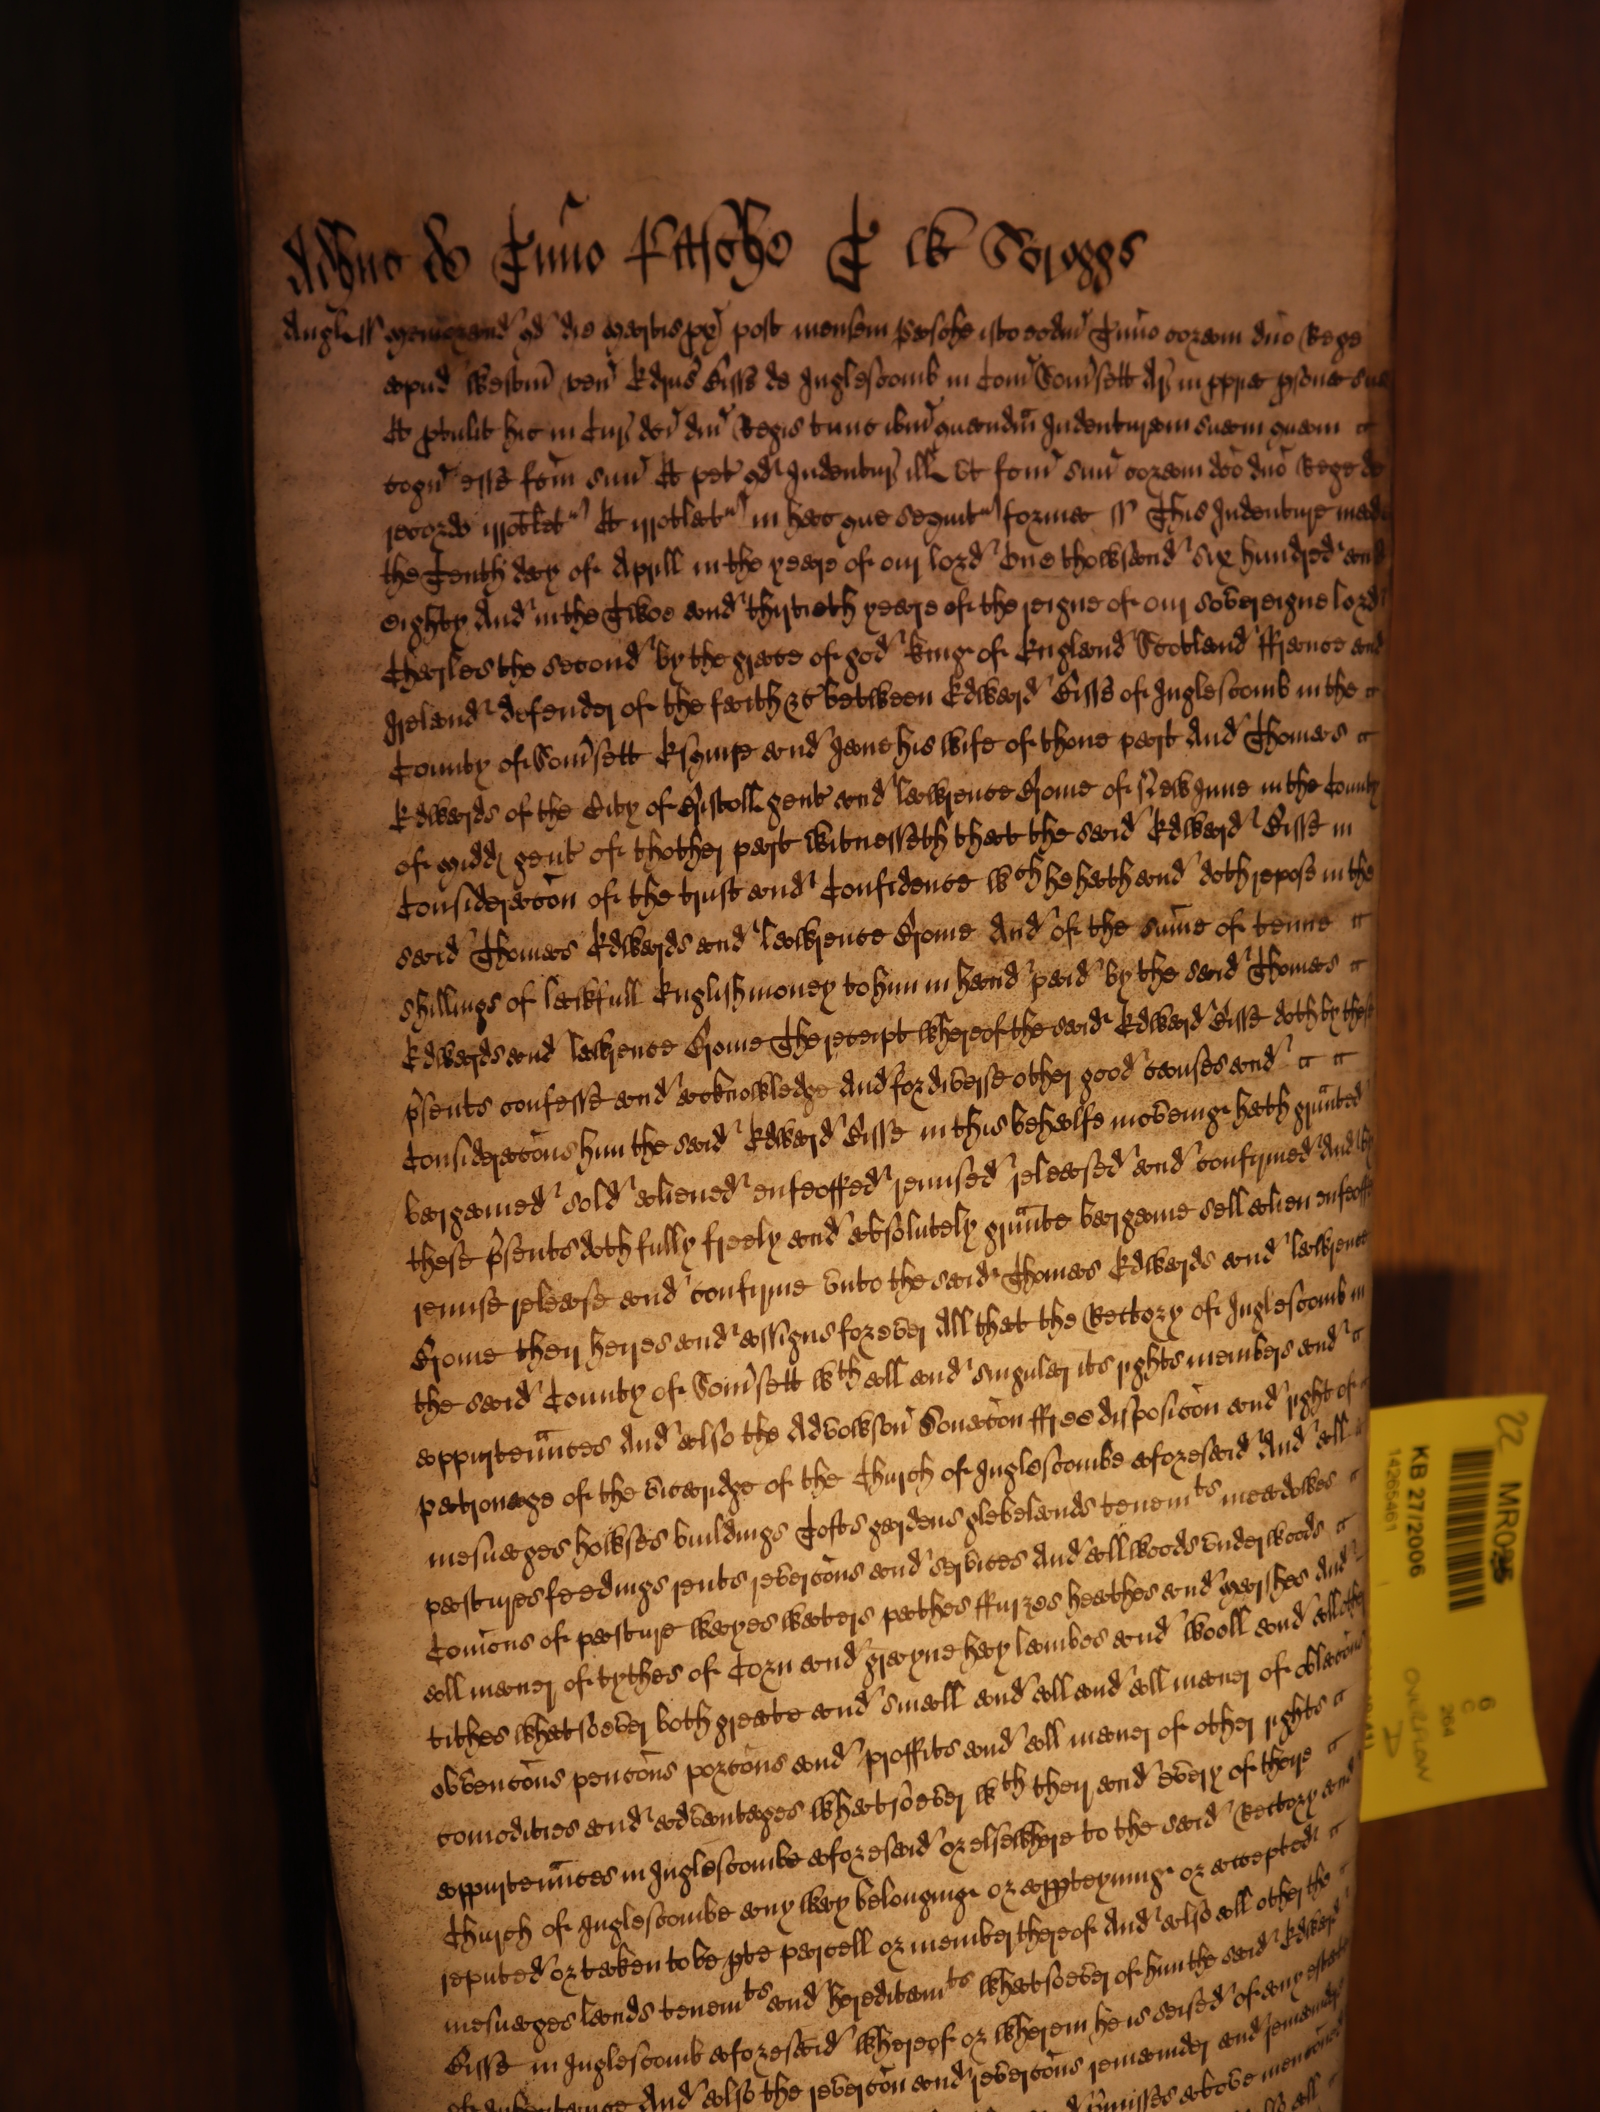 Adhuc de Trmo Pasche T W Scroggs
Angl ss Memorand qd die Martis px post mensem Pasche isto eodm Trmo coram dno Rege
apud Westm ven Edrus Bisse de Inglescomb in Com Somsett Ar in ppria psona sua
Et ptulit hic in Cur dci dni Regis tunc ibm quandam Indenturam suam quam
cogn esse fcm suu Et pet qd Indentur ill ut fcm suu coram dco dno Rege de
recordo irrotlet Et irrotlat in hac que sequit forma ss This Indenture made
the Tenth day of Aprill in the yeare of our lord One thowsand six hundred and
eighty And in the Twoe and thirtieth yeare of the reigne of our Sovereigne lord
Charles the second by the grace of god king of England Scotland ffrance and
Ireland defender of the faith &c betweene Edward Bisse of Inglescomb in the
County of Somsett Esquire and Jane his wife of thone part And Thomas
Edwards of the City of Bristoll gent and Lawrence Brome of New Inne in the County
of Midd gent of thother part witnesseth that the said Edward Bisse in
Consideracon of the trust and Confidence wch he hath and doth repose in the
said Thomas Edwards and Lawrence Brome And of the sume of tenne
shillings of lawfull English money to him in hand paid by the said Thomas
Edwards and Lawrence Brome The receipt whereof the said Edward Bisse doth by these
psents confesse and acknowledge And for diverse other good causes and
Consideracons him the said Edward Bisse in this behalfe moveing hath graunted
bargained sold aliened enfeoffed remised released and confirmed And by
these psents doth fully freely and absolutely graunte bargaine sell alien enfeoffe
remise release and confirme unto the said Thomas Edwards and Lawrence
Brome their heires and assigns forever All that the Rectory of Inglescomb in
the said County of Somsett wth all and singular its rights members and
appurtenances And also the Advowson Donacon ffree disposicon and right of
patronage of the vicaridge of the Church of Inglescombe aforesaid And all
mesuages howses buildings Tofts gardens glebelands tenemts meadowes
pastures feedings rents revercons and services And all woods underwoods
Comons of pasture wayes waters pathes ffurzes heathes and marshes And
all maner of tythes of Corn and grayne hay lambes and wooll and all other
tithes whatsoever both greate and small and all and all maner of oblacons
obvencons pencons porcons and proffits and all maner of other rights
comodities and advantages whatsoever wth their and every of theire
appurtenances in Inglescombe aforesaid or elsewhere to the said Rectory and
Church of Inglescombe any way belonging or appteyning or accepted
reputed or taken to be pte parcell or member thereof And also all other the
mesuages lands tenemts and hereditamts whatsoever of him the said Edward
Bisse in Inglescomb aforesaid whereof or wherein he is seised of any estate
of Inheritance And also the revercon and revercons remainder and remainders
pmisses above menconed
22 MR026
KB 27/2006
14265461
6
C
264
OVERFLOW
D